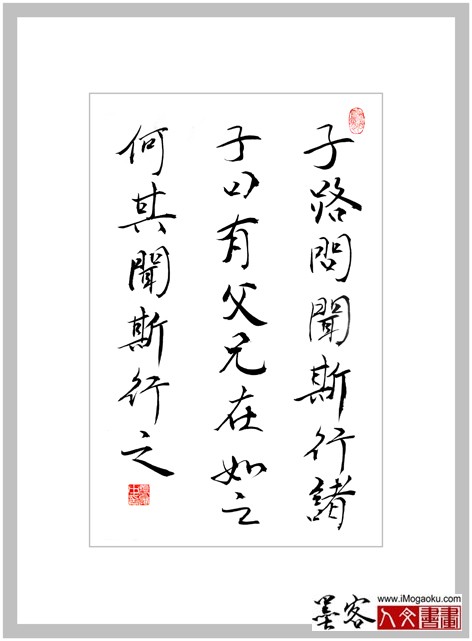 子路問聞斯行諸
子曰有父兄在如之
何其聞斯行之
www.iMogaoku.com
墨客人文書畫